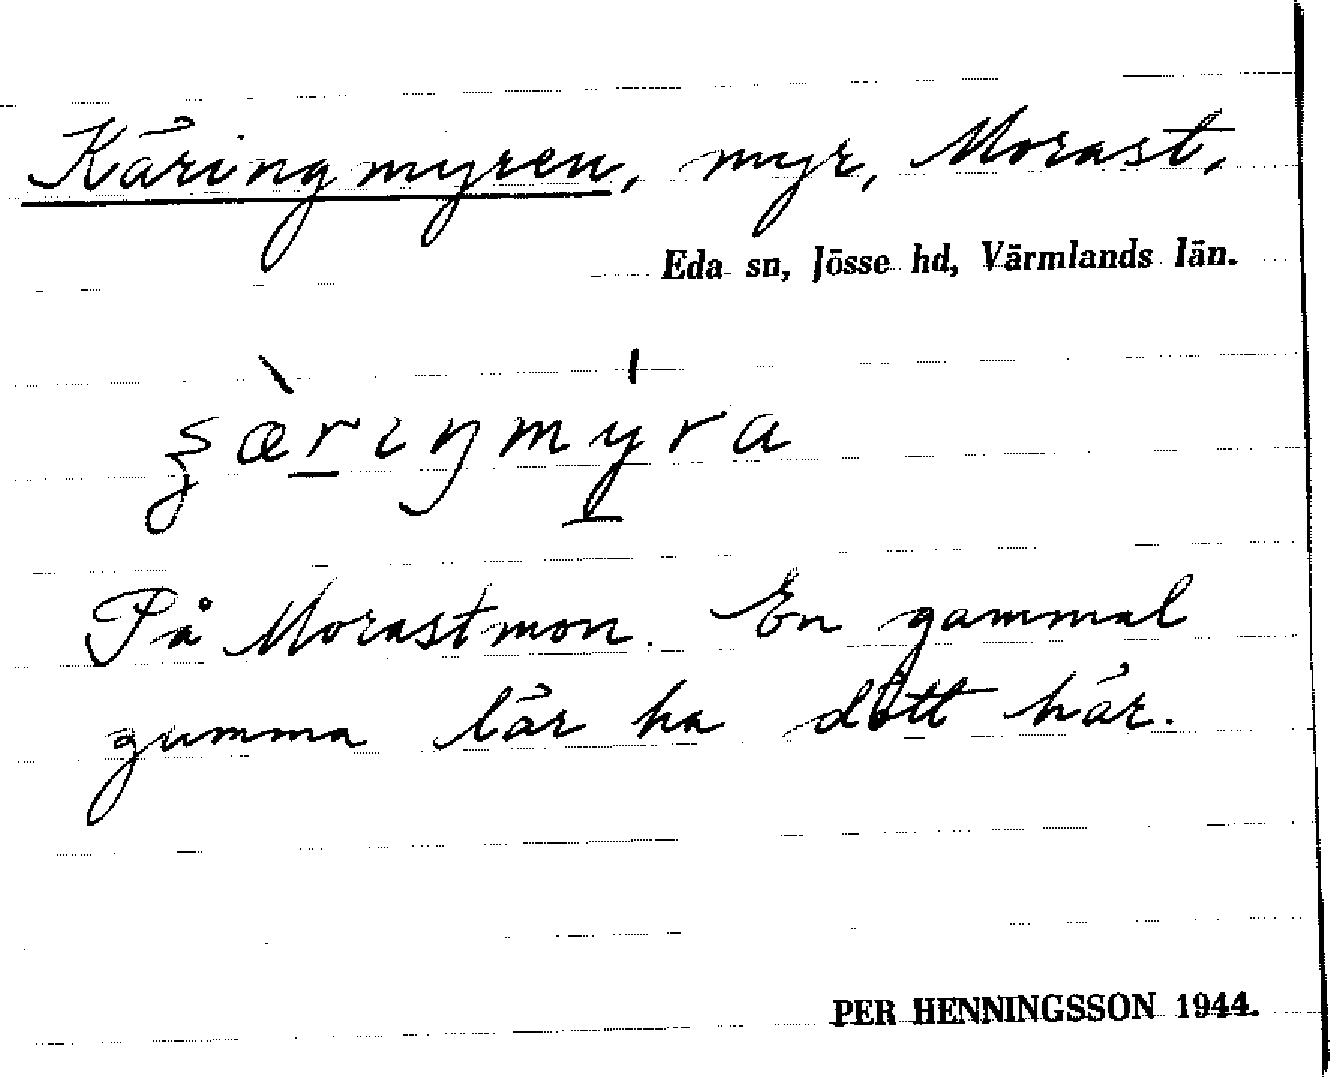 Käringmyren, myr, Morast,
Eda sn, Jösse hd, Värmlands län.
ʂæ̀r̲ıŋmý̲ra
På Morastmon. En gammal
gumma lär ha dött här.
PER HENNINGSSON 1944.